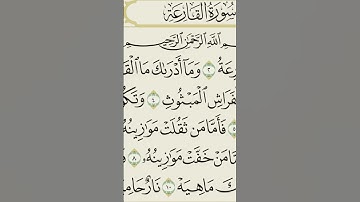 سُورَةُ القَارِعَةِ
ـمِ اللَّهِ الرَّحْمَٰنِ الرَّحِيـ
رِعَةُ ٢ وَمَآ أَدْرَىٰكَ مَا ٱلْقَـ
ـفَرَاشِ ٱلْمَبْثُوثِ ٤ وَتَكُـ
٥ فَأَمَّا مَن ثَقُلَتْ مَوَٰزِينُهُ
ـا مَنْ خَفَّتْ مَوَٰزِينُهُۥ ٨
ـكَ مَا هِيَهْ ١٠ نَارٌ حَامِـ